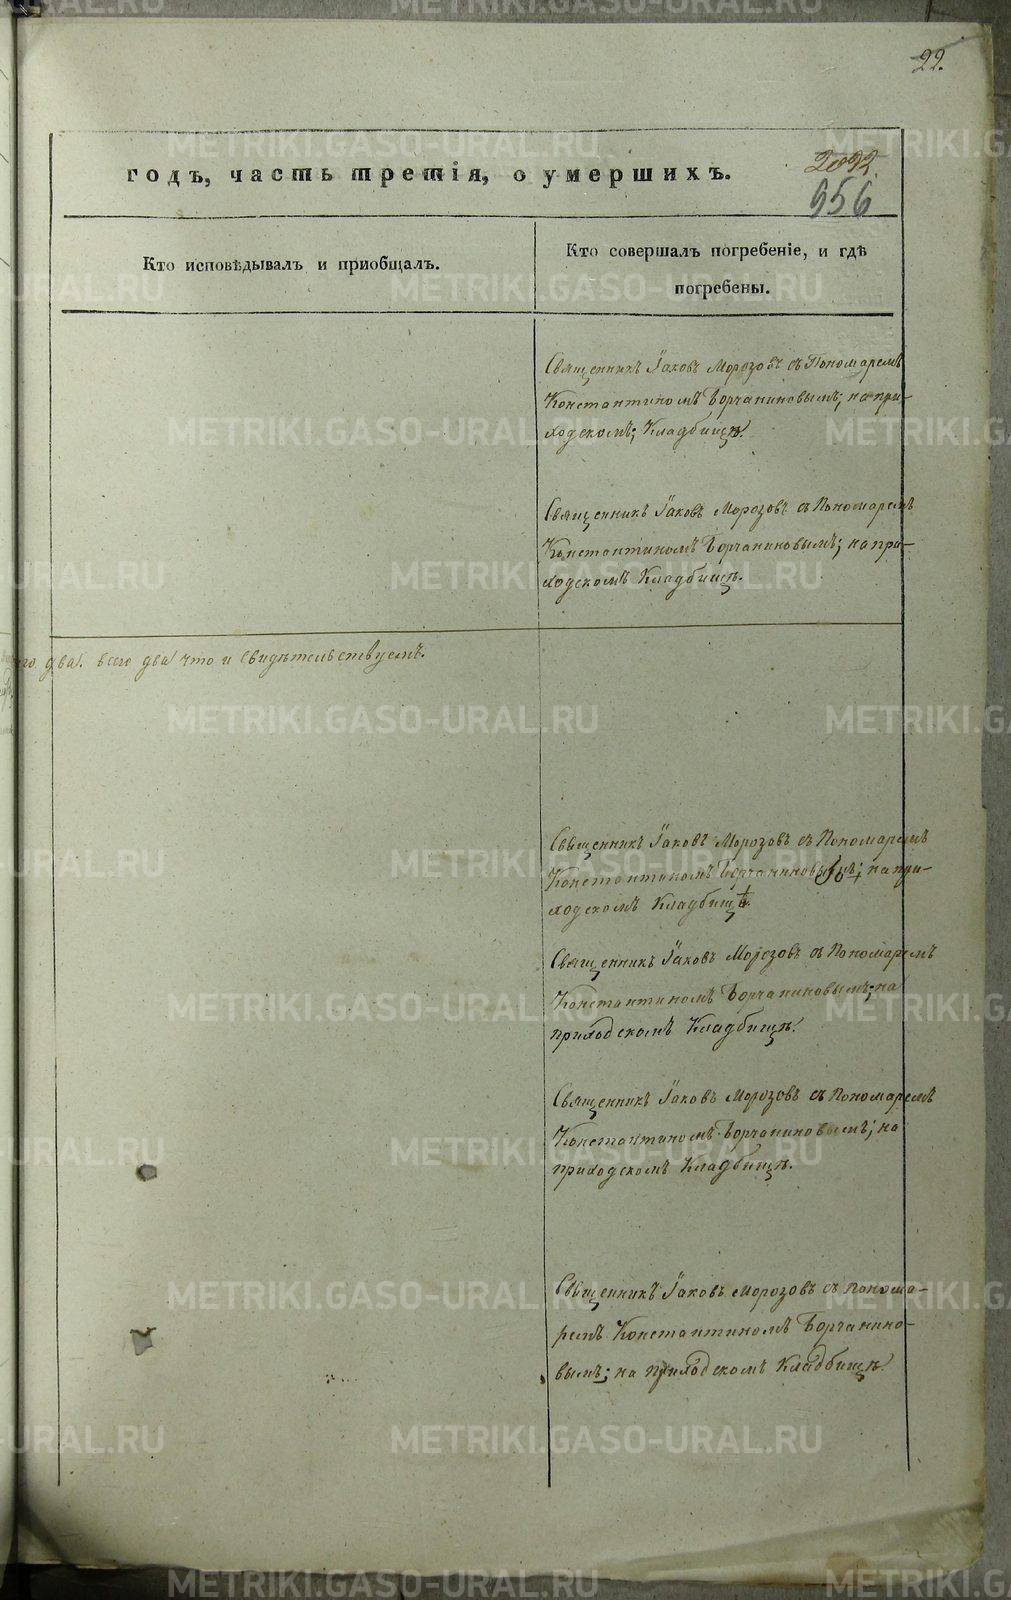 22.
годъ, часть третія, о умершихъ.
2092.
656
Кто исповѣдывалъ и приобщалъ.
Кто совершалъ погребеніе, и гдѣ
погребены.
Священникъ Іаковъ Морозовъ съ Пономаремъ
Константиномъ Борчаниновымъ; на при-
ходскомъ; Кладбищѣ.
Священникъ Іаковъ Морозовъ съ Пономаремъ
Константиномъ Борчаниновымъ; на при-
ходскомъ Кладбищѣ.
два. всего два что и свидѣтельствуемъ.
Священникъ Іаковъ Морозовъ съ Пономаремъ
Константиномъ Борчаниновымъ; на при-
ходскомъ Кладбищѣ.
Священникъ Іаковъ Морозовъ съ Пономаремъ
Константиномъ Борчаниновымъ; на
приходскомъ Кладбищѣ.
Священникъ Іаковъ Морозовъ съ Пономаремъ
Константиномъ Борчаниновымъ; на
приходскомъ Кладбищѣ.
Священникъ Іаковъ Морозовъ съ Понома-
ремъ Константиномъ Борчанино-
вымъ; на приходскомъ Кладбищѣ.
METRIKI.GASO-URAL.RU